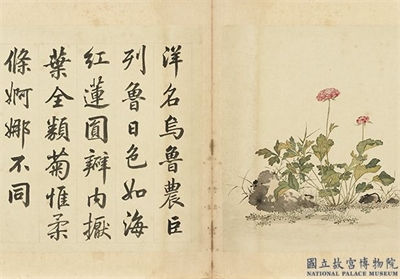 洋名烏魯農巨
列魯日色如海
紅蓮圓瓣內擫
葉全類菊惟柔
條婀娜不同
國立故宮博物院
NATIONAL PALACE MUSEUM